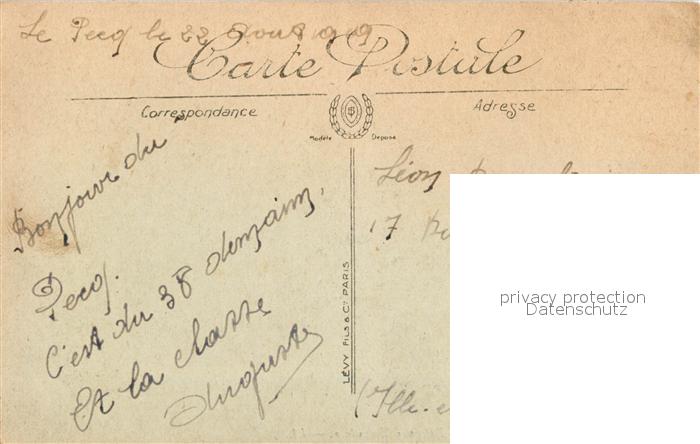 Le Pecq le 22 Aout 1919
Carte Postale
Correspondance
Adresse
Modèle Déposé
Bonjour du
Pecq.
C'est du 38 demain,
Et la classe
Auguste
LÉVY FILS & Cie PARIS
Léon
17
(Ille-e
privacy protection
Datenschutz